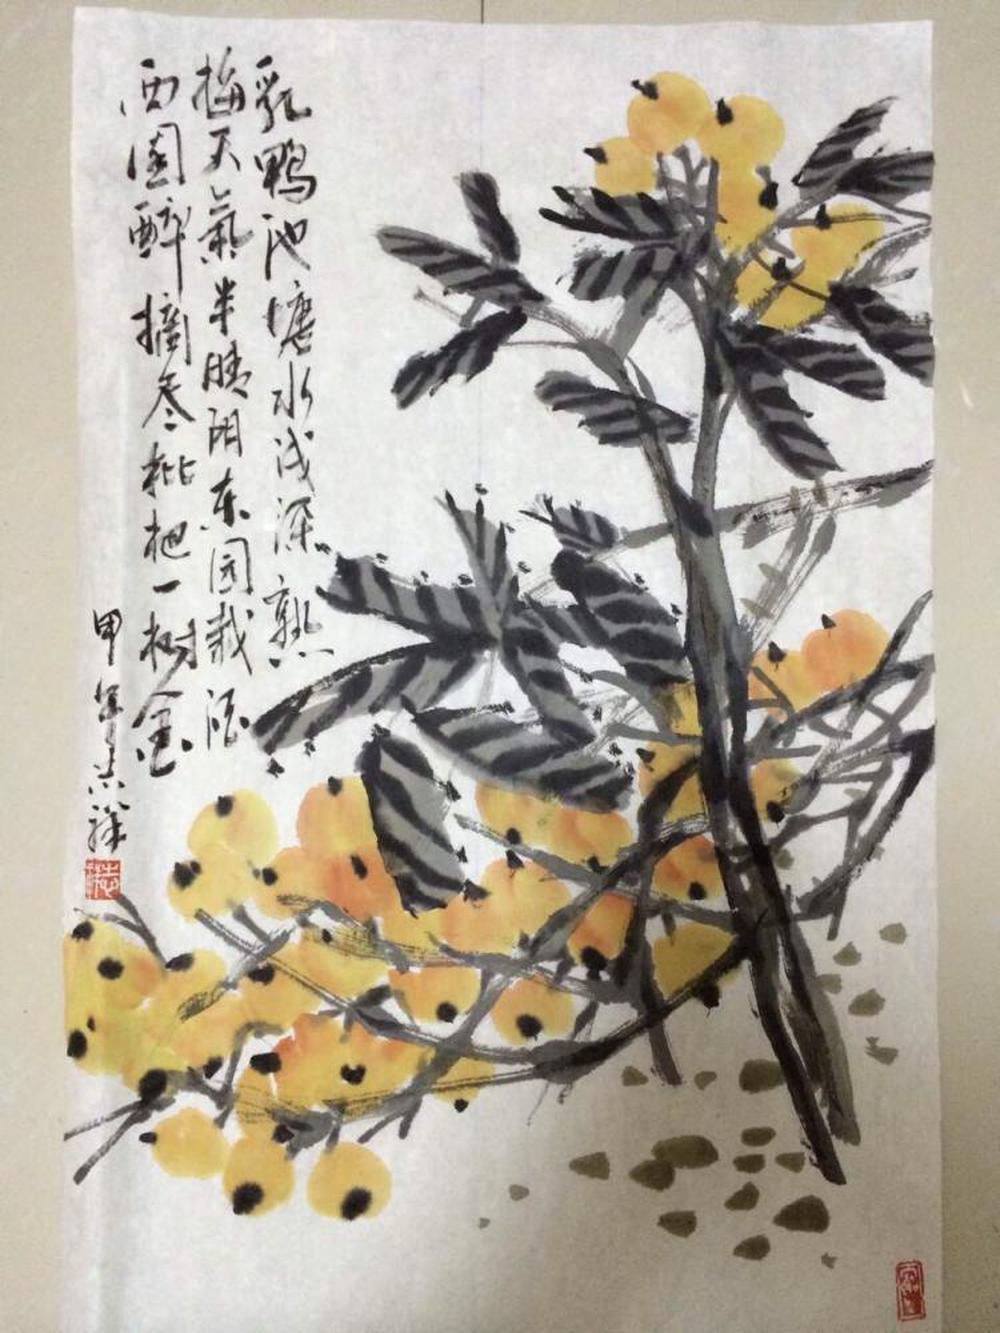 乳鸭池塘水浅深熟
梅天氣半晴阴东园载酒
西園醉摘尽枇杷一树金
甲午志祥